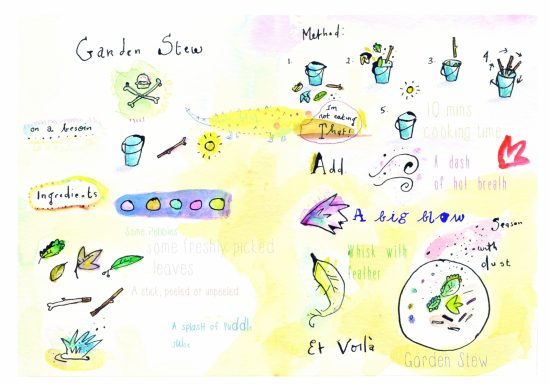 Garden Stew
on a besoin
Ingredients
Some Pebbles
some freshly picked
leaves
A stick, peeled or unpeeled
A splash of puddle
juice
Method:
1.
2.
3.
4.
I'm
not eating
That!
5.
10 mins
cooking time
Add
A dash
of hot breath
A big blow
Whisk with
feather
Season
with
dust
Et Voilà
Garden Stew